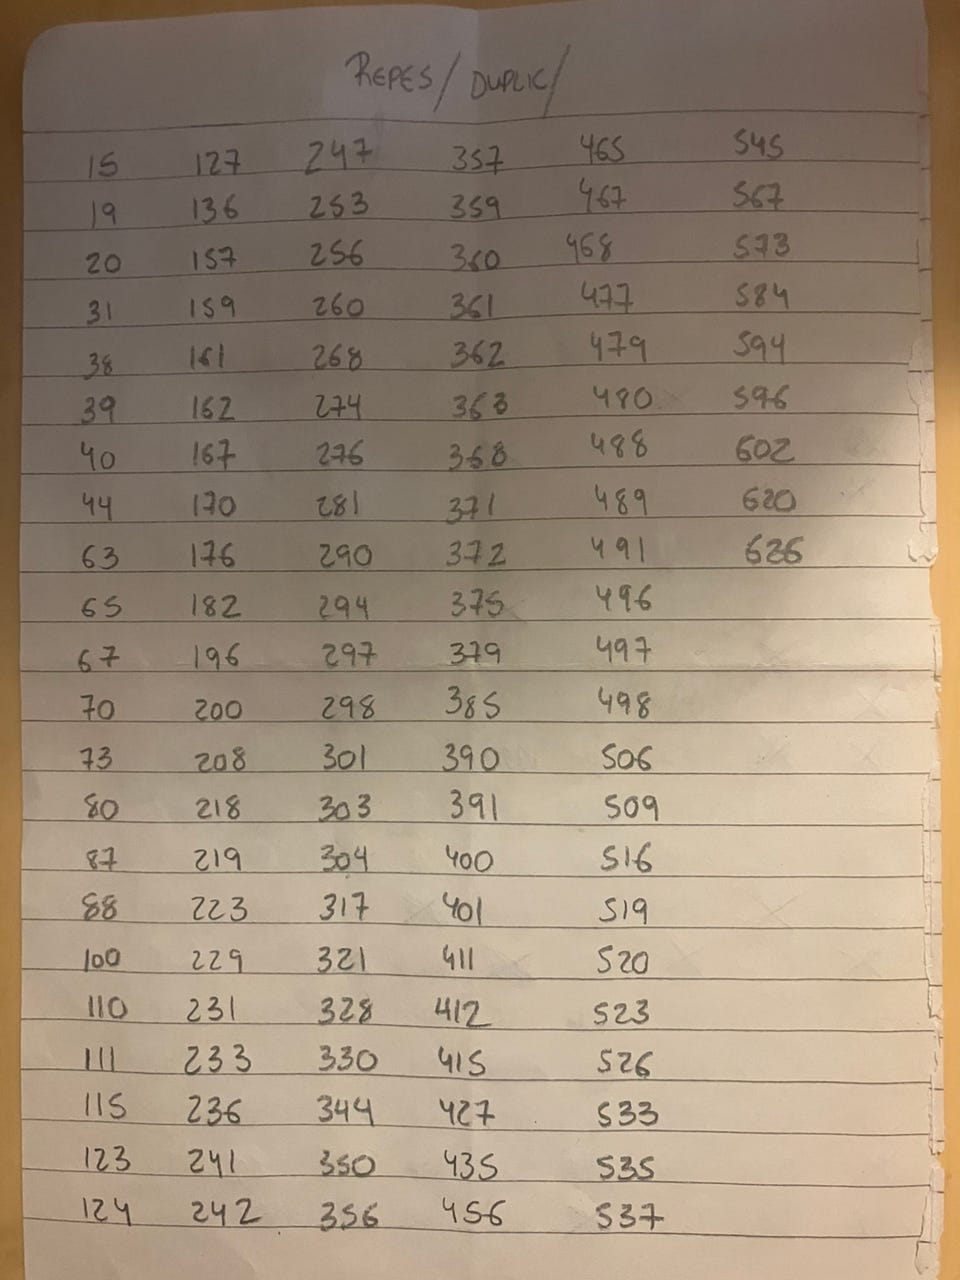 REPES/ DUPLIC/
15 127 247 357 465 545
19 136 253 359 467 567
20 157 256 360 468 573
31 159 260 361 477 584
38 161 268 362 479 594
39 162 274 363 480 596
40 167 276 368 488 602
44 170 281 371 489 620
63 176 290 372 491 626
65 182 294 375 496
67 196 297 379 497
70 200 298 385 498
73 208 301 390 506
80 218 303 391 509
87 219 304 400 516
88 223 317 401 519
100 229 321 411 520
110 231 328 412 523
111 233 330 415 526
115 236 344 427 533
123 241 350 435 535
124 242 356 456 537